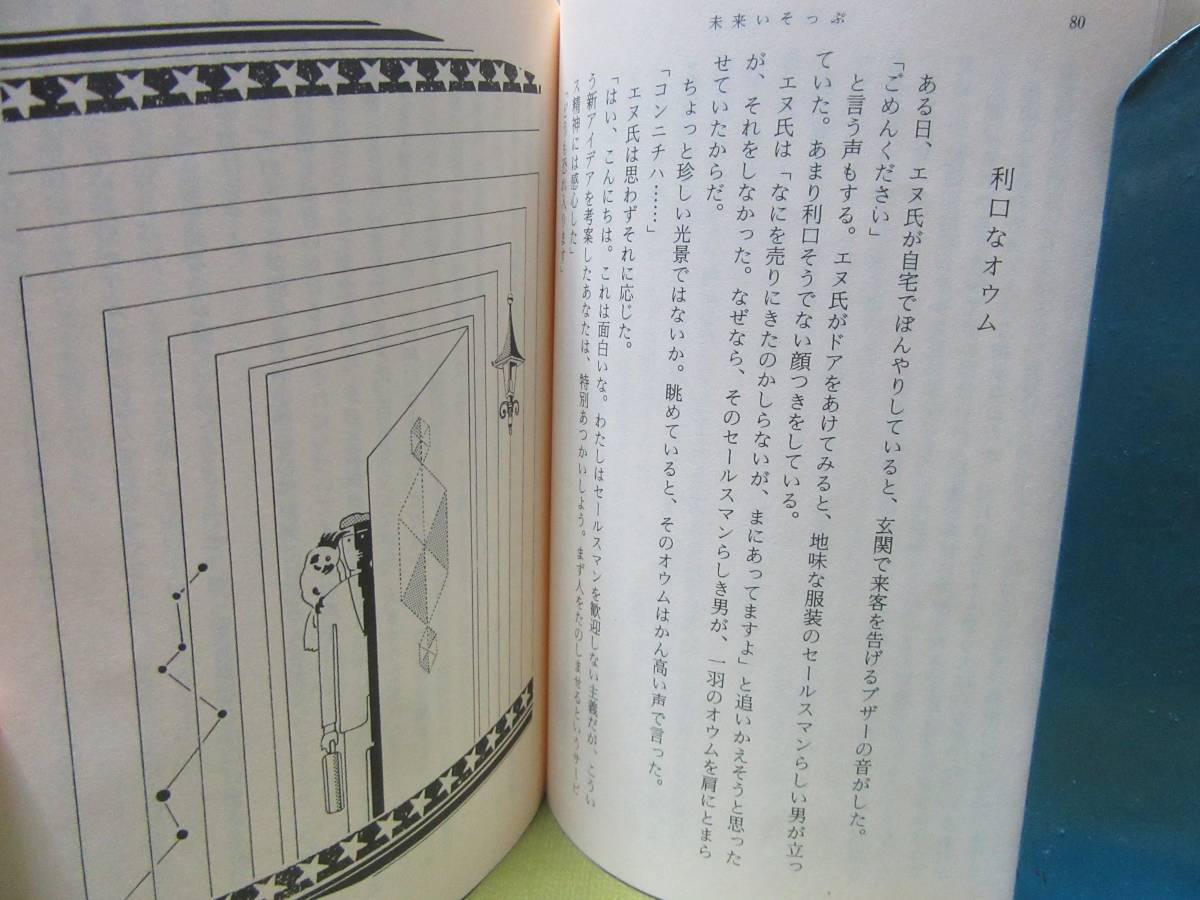 未来いそっぷ
80
利口なオウム
ある日、エヌ氏が自宅でぼんやりしていると、玄関で来客を告げるブザーの音がした。
「ごめんください」
と言う声もする。エヌ氏がドアをあけてみると、地味な服装のセールスマンらしい男が立っ
ていた。あまり利口そうでない顔つきをしている。
エヌ氏は「なにを売りにきたのかしらないが、まにあってますよ」と追いかえそうと思った
が、それをしなかった。なぜなら、そのセールスマンらしき男が、一羽のオウムを肩にとまら
せていたからだ。
ちょっと珍しい光景ではないか。眺めていると、そのオウムはかん高い声で言った。
「コンニチハ……」
エヌ氏は思わずそれに応じた。
「はい、こんにちは。これは面白いな。わたしはセールスマンを歓迎しない主義だが、こうい
う新アイデアを考案したあなたは、特別あつかいしよう。まず人をたのしませるというサービ
ス精神には感心した」
「どうも恐れ入ります」